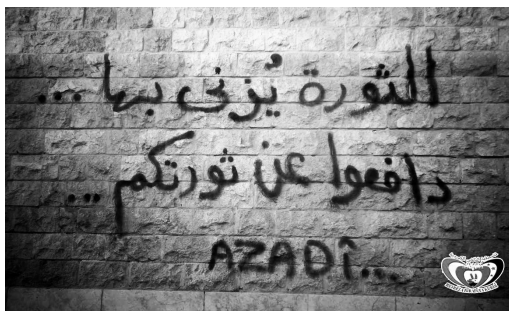 الثورة يُزنى بها ...
دافعوا عن ثورتكم ...
AZADÎ...